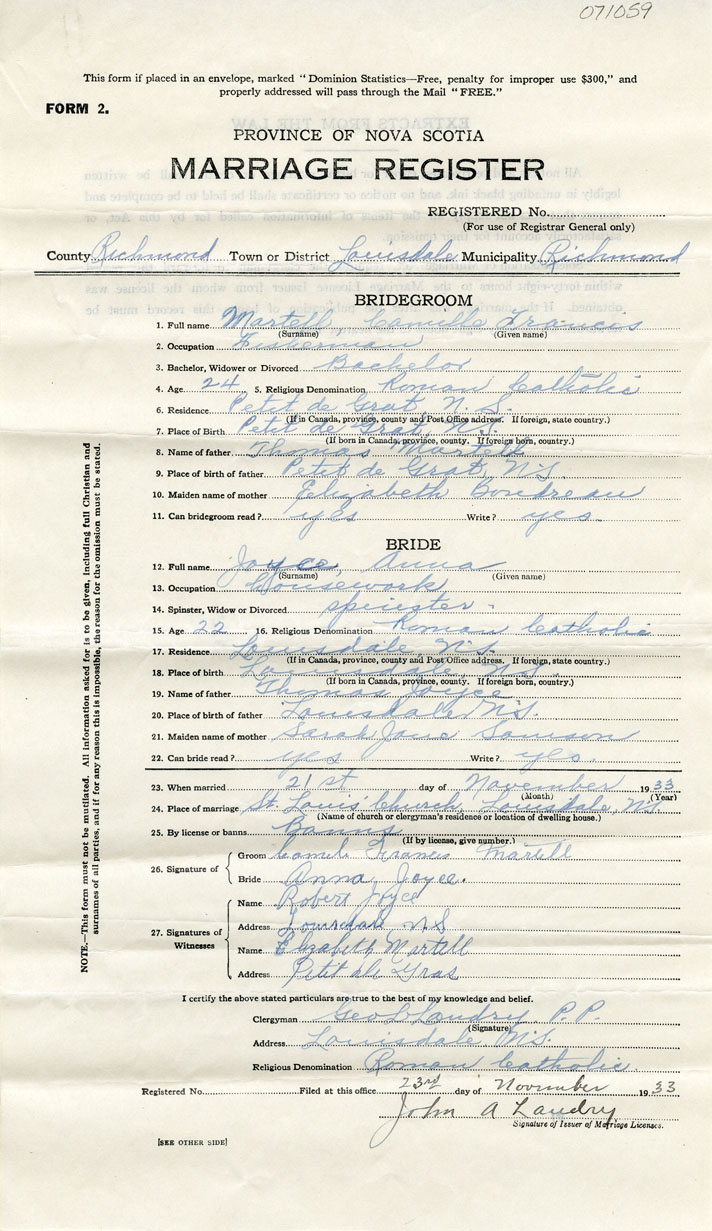 071059
This form if placed in an envelope, marked "Dominion Statistics—Free, penalty for improper use $300," and
properly addressed will pass through the Mail "FREE."
FORM 2.
PROVINCE OF NOVA SCOTIA
MARRIAGE REGISTER
REGISTERED No.
(For use of Registrar General only)
County Richmond Town or District Louisdale Municipality Richmond
BRIDEGROOM
1. Full name Martell, Camille Francis
(Surname) (Given name)
2. Occupation Fisherman
3. Bachelor, Widower or Divorced Bachelor
4. Age 24 5. Religious Denomination Roman Catholic
6. Residence Petit de Grat, N.S.
(If in Canada, province, county and Post Office address. If foreign, state country.)
7. Place of Birth Petit de Grat, N.S.
(If born in Canada, province, county. If foreign born, country.)
8. Name of father Thomas Martell
9. Place of birth of father Petit de Grat, N.S.
10. Maiden name of mother Elizabeth Boudreau
11. Can bridegroom read? yes Write? yes.
BRIDE
12. Full name Joyce, Anna
(Surname) (Given name)
13. Occupation Housework
14. Spinster, Widow or Divorced spinster -
15. Age 22 16. Religious Denomination Roman Catholic
17. Residence Louisdale, N.S.
(If in Canada, province, county and Post Office address. If foreign, state country.)
18. Place of birth Louisdale, N.S.
(If born in Canada, province, county. If foreign born, country.)
19. Name of father Thomas Joyce
20. Place of birth of father Louisdale N.S.
21. Maiden name of mother Sarah Jane Samson
22. Can bride read? yes Write? yes.
23. When married 21st day of November 1933
(Month) (Year)
24. Place of marriage St. Louis' Church, Louisdale, N.S.
(Name of church or clergyman's residence or location of dwelling house.)
25. By license or banns Banns
(If by license, give number.)
26. Signature of
Groom Camile Francis Martell
Bride Anna Joyce.
27. Signatures of Witnesses
Name Robert Joyce
Address Louisdale N.S
Name Elizabeth Martell
Address Petit de Gras
I certify the above stated particulars are true to the best of my knowledge and belief.
Clergyman Geo L Landry, P.P.
(Signature)
Address Louisdale N.S.
Religious Denomination Roman Catholic.
Registered No. Filed at this office 23rd day of November 1933
John A Landry
Signature of Issuer of Marriage Licenses.
[SEE OTHER SIDE]
NOTE.—This form must not be mutilated. All information asked for is to be given, including full Christian and
surnames of all parties, and if for any reason this is impossible, the reason for the omission must be stated.